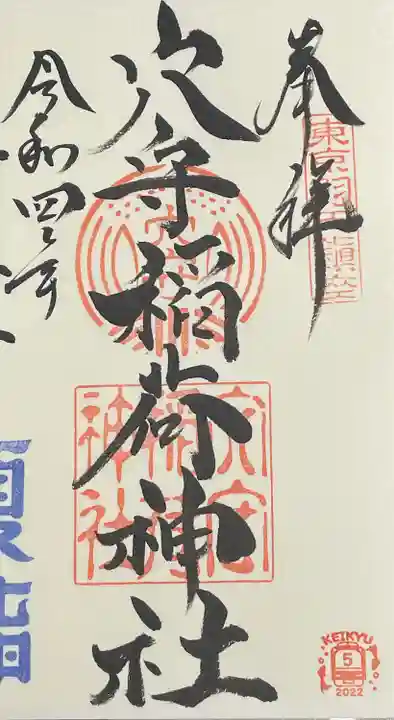 奉拝
東京羽田鎮座
穴守稲荷神社
穴守
稲荷
神社
令和四年
夏詣
KEIKYU
5
2022